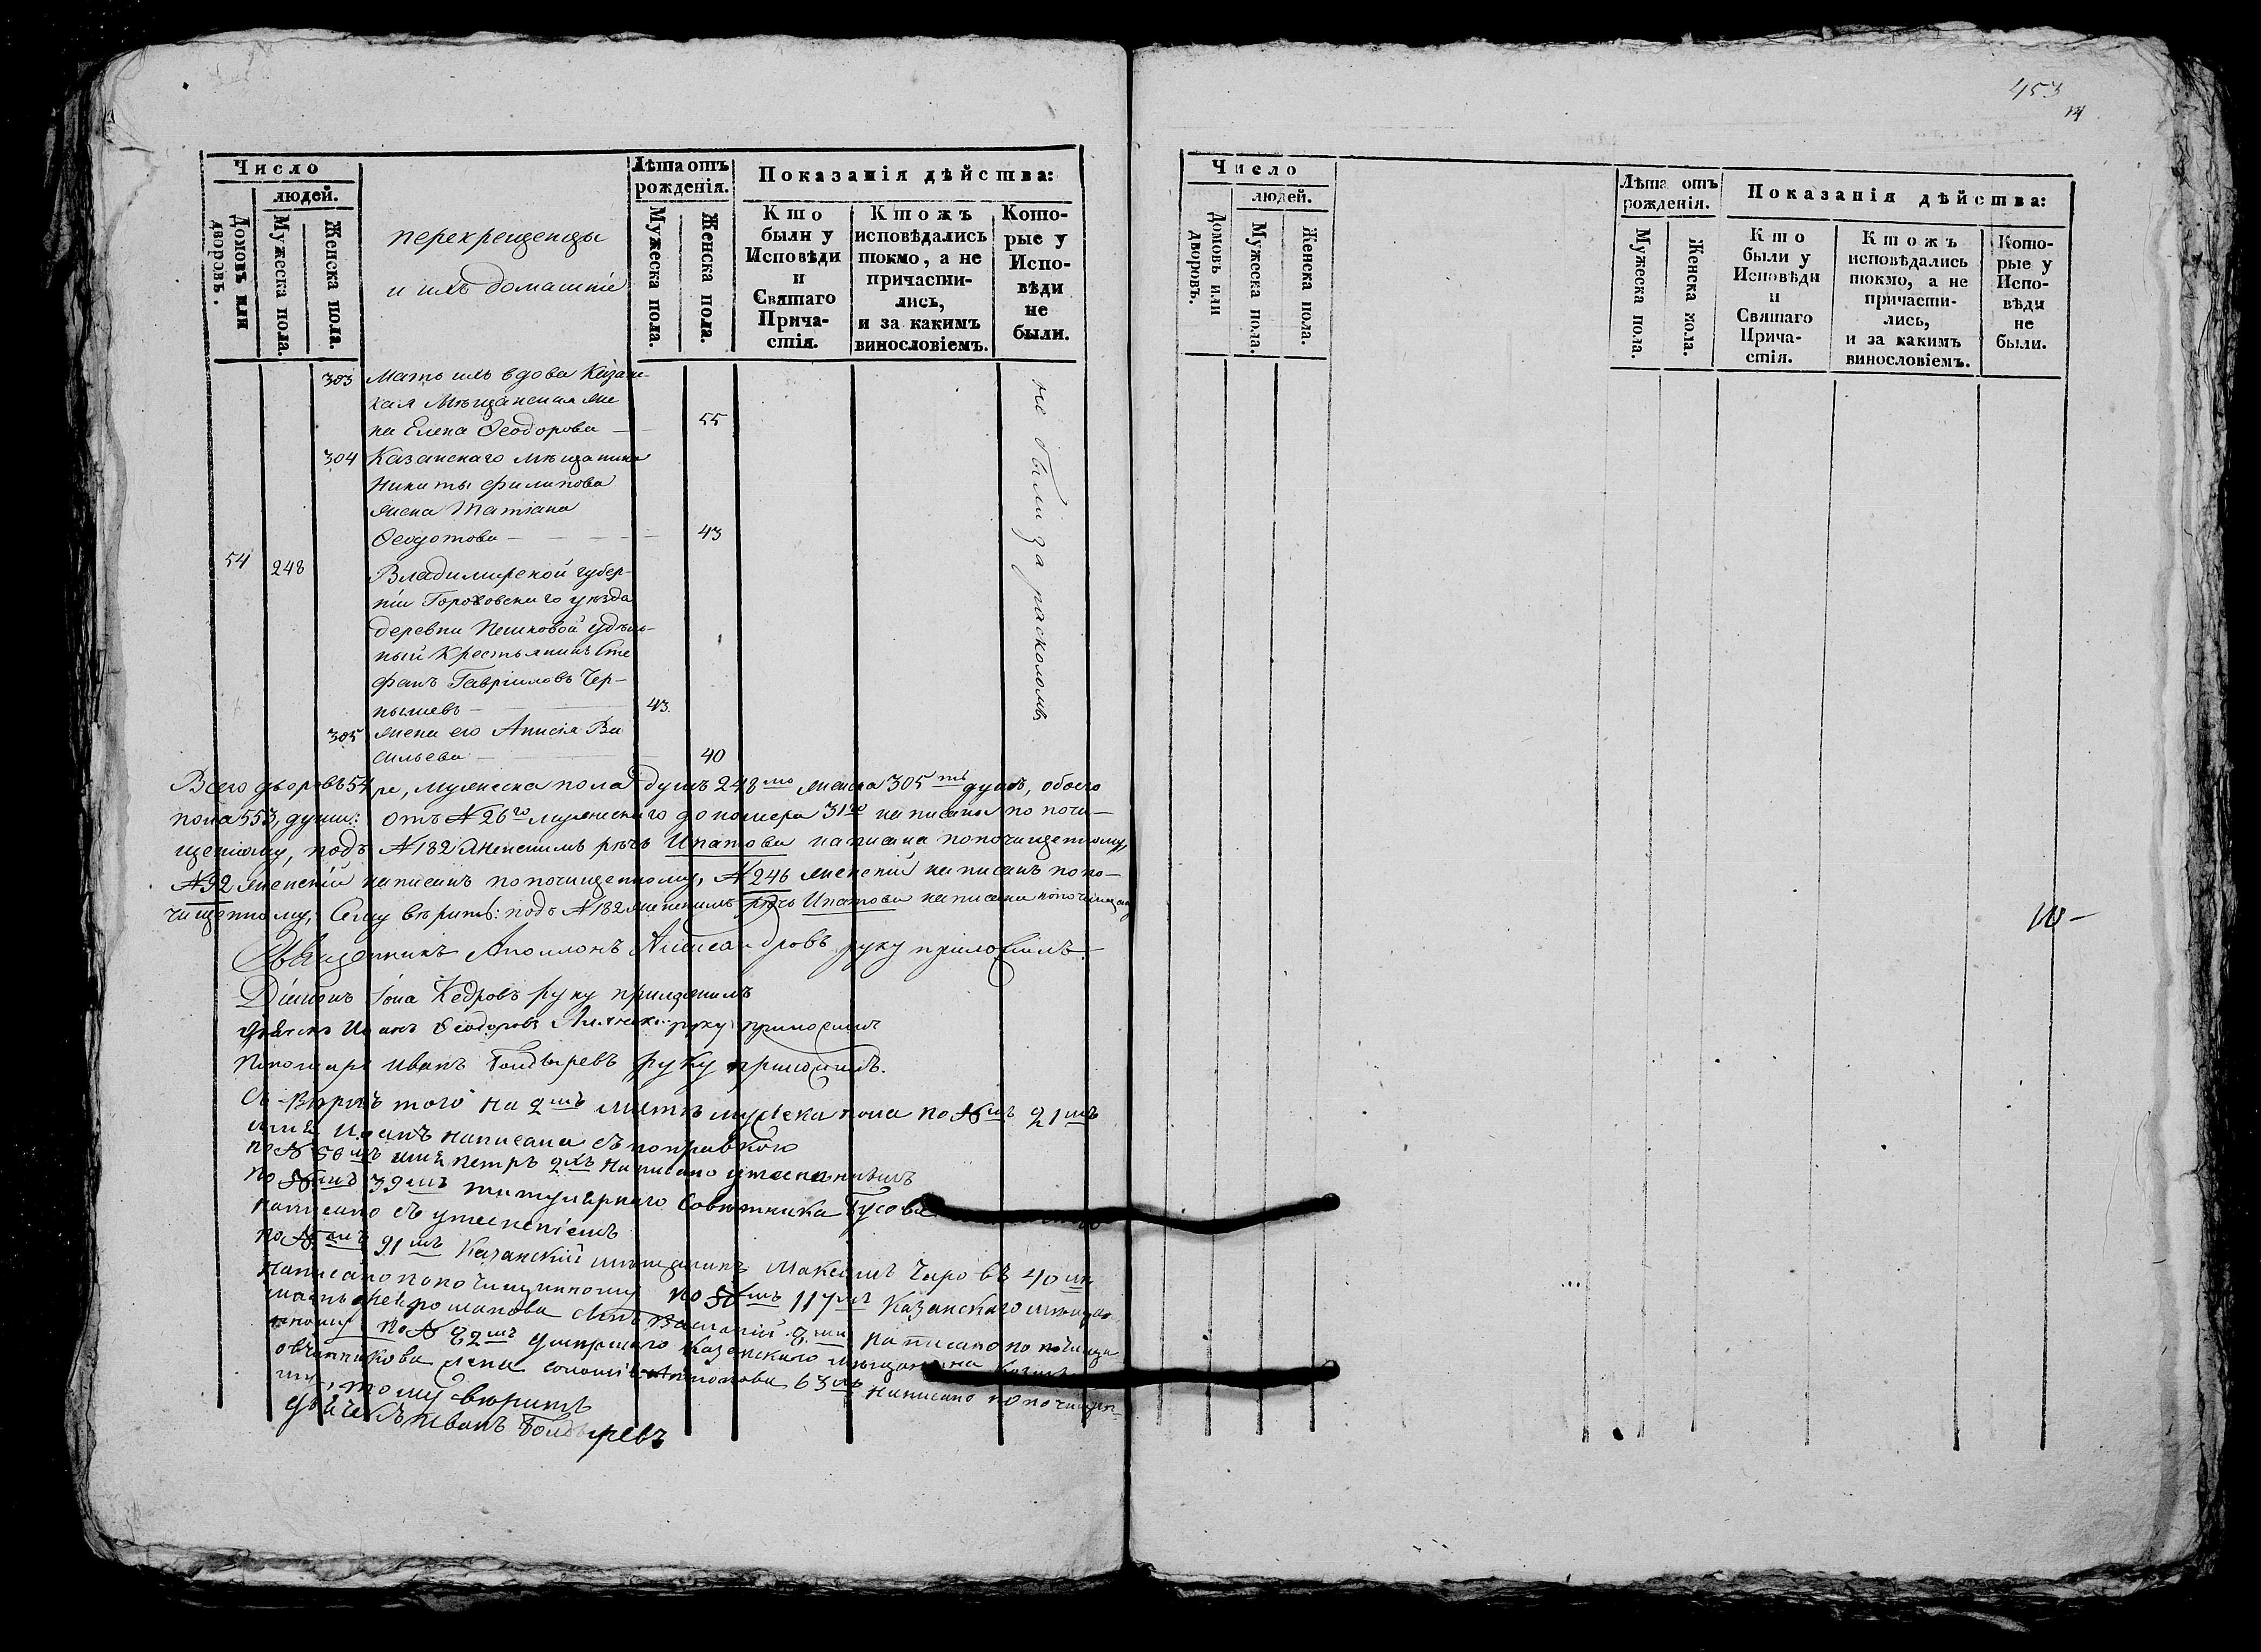 Число
людей.
Домовъ или дворовъ.
Мужеска пола.
Женска пола.
перекрещенцы
и ихъ домашніе
Лѣта отъ
рожденія.
Мужеска пола.
Женска пола.
Показанія дѣйства:
Кто
были у
Исповѣди
и
Святаго
Прича-
стія.
Ктожъ
исповѣдались
токмо, а не
причасти-
лись,
и за какимъ
винословіемъ.
Кото-
рые у
Испо-
вѣди
не
были.
303 Мать ихъ вдова Казан-
кая Мѣщанская же
на Елена Ѳеодорова — 55
304 Казанскаго мѣщанина
Никиты Филипова
жена Татіана
Ѳеодотова — 43
54 248 Владимирской губер-
ніи Гороховскаго уѣзда
деревни Пешковой удѣль-
ный Крестьянинъ Сте
фанъ Гавриловъ Чер-
нышевъ — 43.
305 жена его Анисія Ва
сильева — 40
не были за расколомъ
Всего дворовъ 54ре, мужеска пола душъ 248мо женска 305ть душъ, обоего
пола 553, души: отъ № 26го мужескаго до номера 31го написаны по почи-
щенному, подъ № 182 женскимъ рѣчь Ипатова написана по почищенному,
№ 92 женскій написанъ по почищенному, № 246 женскій написанъ по по-
чищенному, Сему вѣрить: подъ № 182 женскимъ рѣчь Ипатова написана по почищен
Священникъ Аполлонъ Александровъ руку приложилъ.
Діаконъ Іона Кедровъ руку приложилъ
Дьячекъ Иванъ Ѳеодоровъ руку приложилъ
Пономарь Иванъ Болдыревъ руку приложилъ.
Сверхъ того на 2мъ листѣ мужска пола по №мъ 21мъ
имя Иванъ написана съ поправкою
по № 56мъ имя Петръ 2хъ написано утесненнымъ
по №мъ 39мъ титулярнаго Совѣтника Гусова
написано съ утесненіемъ
по №мъ 91мъ Казанскій мѣщанинъ Максимъ Чаровъ 40
написано по почищенному по №мъ 117мъ Казанскаго мѣщан
романова написано по почище
нному по № 82мъ умершаго Казанскаго мѣщанина
овчинникова жена 63 написано по почищен-
му, тому вѣрить
дьячекъ Иванъ Болдыревъ
453
Число
людей.
Домовъ или дворовъ.
Мужеска пола.
Женска пола.
Лѣта отъ
рожденія.
Мужеска пола.
Женска пола.
Показанія дѣйства:
Кто
были у
Исповѣди
и
Святаго
Прича-
стія.
Ктожъ
исповѣдались
токмо, а не
причасти-
лись,
и за какимъ
винословіемъ.
Кото-
рые у
Испо-
вѣди
не
были.